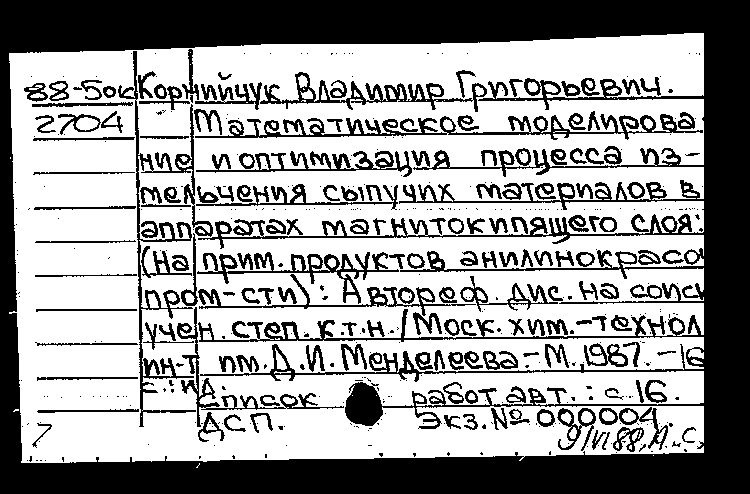 88-5ок Корнийчук, Владимир Григорьевич.
2704 Математическое моделирова
ние и оптимизация процесса из-
мельчения сыпучих материалов в
аппаратах магнитокипящего слоя:
(на прим. продуктов анилинокрасо
пром-сти): Автореф. дис. на соиск
учен. степ. к.т.н. / Моск. хим.-технол
ин-т им. Д.И. Менделеева.- М., 1987. -16
с.: ил.
Список работ авт.: с 16.
ДСП. Экз. № 000004.
7 9/VI 88, А.С,